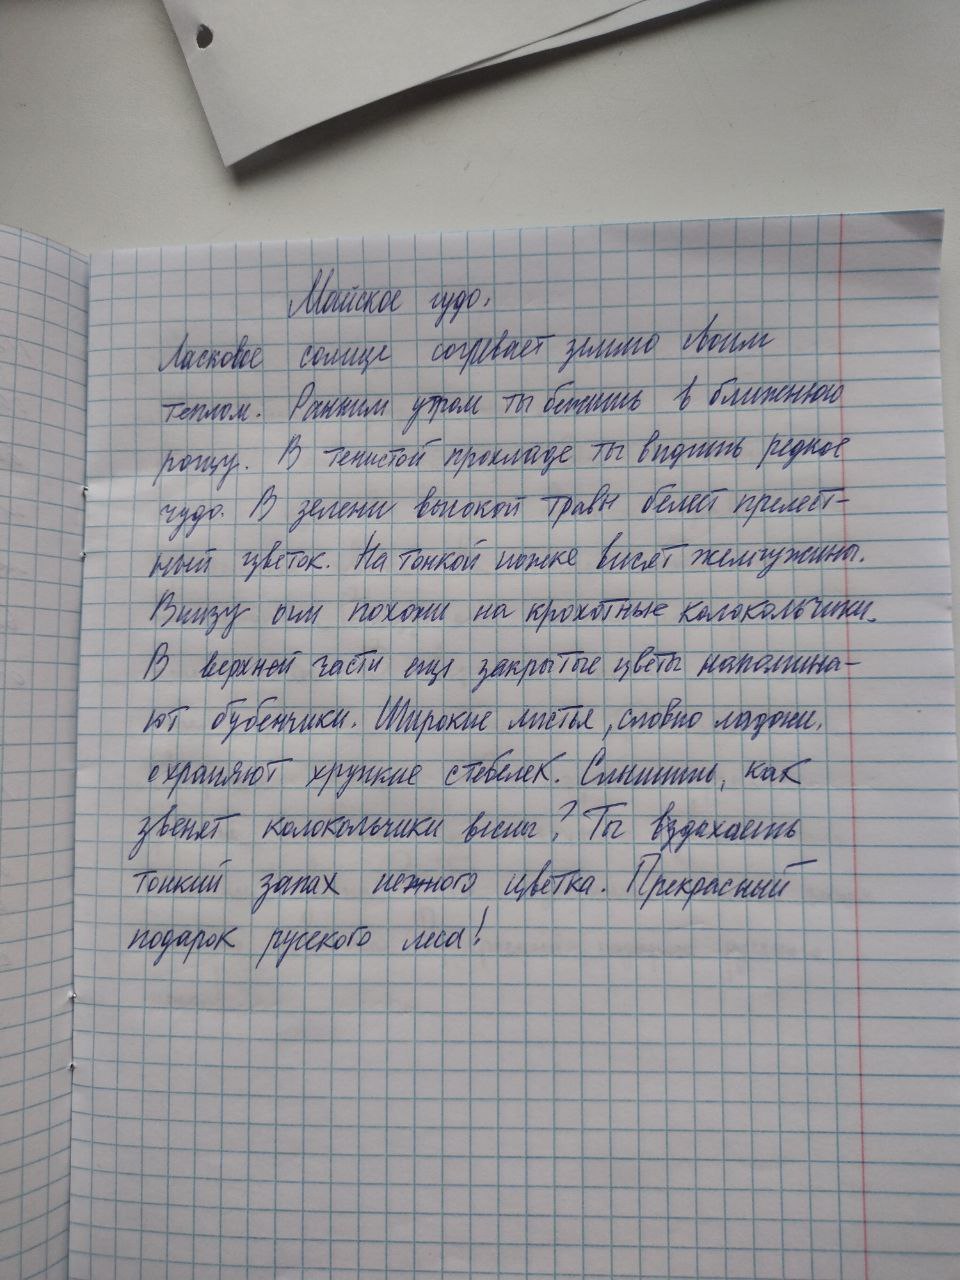 Майское чудо.
Ласковое солнце согревает землю своим
теплом. Ранним утром ты бежишь в ближнюю
рощу. В тенистой прохладе ты видишь редкое
чудо. В зелени высокой травы белеет прелест-
ный цветок. На тонкой ножке висят жемчужины.
Внизу они похожи на крохотные колокольчики.
В верхней части ещё закрытые цветы напомина-
ют бубенчики. Широкие листья, словно ладони,
охраняют хрупкие стебелек. Слышишь, как
звенят колокольчики весны? Ты вздыхаешь
тонкий запах нежного цветка. Прекрасный
подарок русского леса!